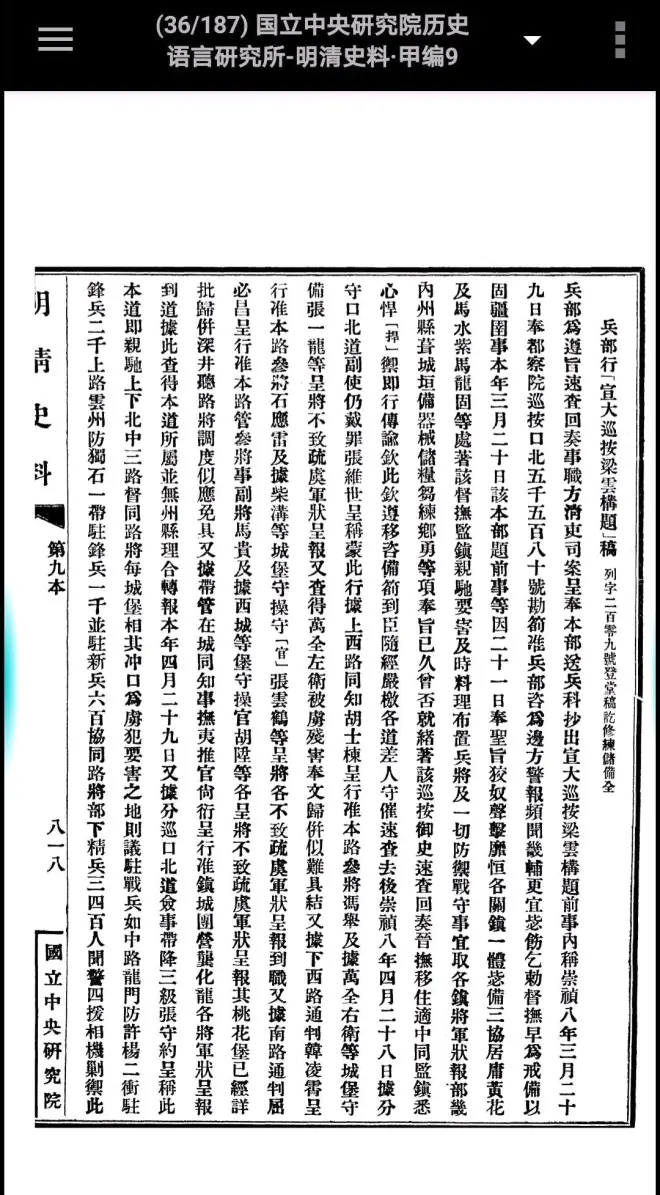 (36/187) 国立中央研究院历史
语言研究所-明清史料·甲编9
兵部行「宣大巡按梁雲構題」稿 列字二百零九號登堂稿訖修練儲備全
兵部為遵旨速查回奏事職方清吏司案呈奉本部送兵科抄出宣大巡按梁雲構題前事內稱崇禎八年三月二十
九日奉都察院巡按口北五千五百八十號勘箚准兵部咨為邊方警報頻聞畿輔更宜毖飭乞勅督撫早為戒備以
固疆圉事本年三月二十日該本部題前事等因二十一日奉聖旨狡奴聲擊靡恒各關鎮一體毖備三協居庸黃花
及馬水紫馬龍固等處著該督撫監鎮親馳要害及時料理布置兵將及一切防禦戰守事宜取各鎮將軍狀報部畿
內州縣葺城垣備器械儲糧芻練鄉勇等項奉旨已久曾否就緒著該巡按御史速查回奏晉撫移住適中同監鎮悉
心悍「捍」禦即行傳諭欽此欽遵移咨備箚到臣隨經嚴檄各道差人守催速查去後崇禎八年四月二十八日據分
守口北道副使仍戴罪張維世呈稱蒙此行據上西路同知胡士棟呈行准本路參將馮舉及據萬全右衛等城堡守
備張一龍等呈將不致疏虞軍狀呈報又查得萬全左衛被虜殘害奉文歸併似難具結又據下西路通判韓凌霄呈
行准本路參將石應雷及據柴溝等城堡守操守「官」張雲鶴等呈將各不致疏虞軍狀呈報到職又據南路通判屈
必昌呈行准本路管參將事副將馬貴及據西城等堡守操官胡陞等各呈將不致疏虞軍狀呈報其桃花堡已經詳
批歸併深井聽路將調度似應免具又據帶管在城同知事撫夷推官尙衍呈行准鎮城團營龔化龍各將軍狀呈報
到道據此查得本道所屬並無州縣理合轉報本年四月二十九日又據分巡口北道僉事帶降三級張守約呈稱此
本道即親馳上下北中三路督同路將每城堡相其冲口為虜犯要害之地則議駐戰兵如中路龍門防許楊二衝駐
鋒兵二千上路雲州防獨石一帶駐鋒兵一千並駐新兵六百協同路將部下精兵三四百人聞警四援相機剿禦此
明清史料
第九本
八一八
國立中央研究院